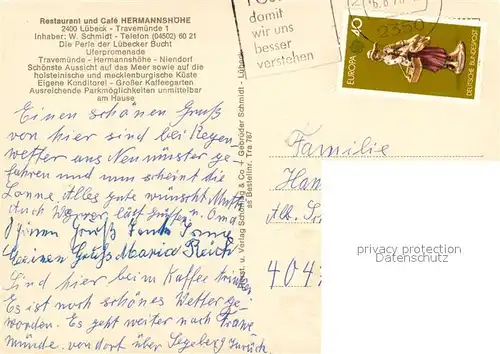 Restaurant und Café HERMANNSHÖHE
2400 Lübeck - Travemünde 1
Inhaber: W. Schmidt - Telefon (04502) 60 21
Die Perle der Lübecker Bucht
Uferpromenade
Travemünde - Hermannshöhe - Niendorf
Schönste Aussicht auf das Meer sowie auf die
holsteinische und mecklenburgische Küste
Eigene Konditorei - Großer Kaffeegarten
Ausreichende Parkmöglichkeiten unmittelbar
am Hause
Einen schönen Gruß
von hier sind bei Regen-
wetter aus Neumünster ge-
fahren und nun scheint die
Sonne. Alles gute wünscht Mutti
Auch läst grüßen u. Oma
Gruß Tante
Gruß Maria
Sind hier beim Kaffee trinken
Es ist noch schönes Wetter ge-
worden. Es geht weiter nach Trave
münde. von dort über Segeberg zurück.
Druck u. Verlag Schöning & Co + Gebrüder Schmidt - Lübeck
Bestellnr. Tra 787
damit
wir uns
besser
verstehen
2350
EUROPA
40
DEUTSCHE BUNDESPOST
Familie
Han
404
privacy protection
Datenschutz